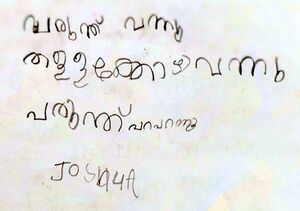 പരുന്ത് വന്നു
തള്ളക്കോഴിവന്നു
പരുന്ത് പറപറന്നു
JOSHUA